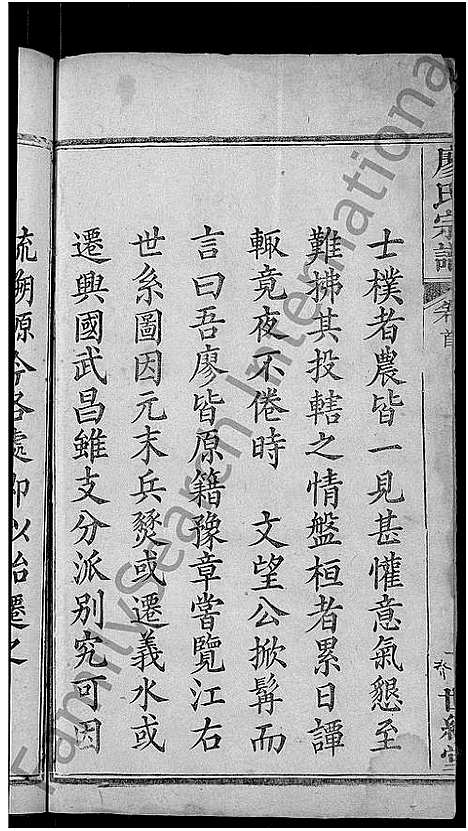 廖氏宗譜
卷首
士樸者農皆一見甚懽意氣懇至
難拂其投轄之情盤桓者累日譚
輒竟夜不倦時　文望公掀髯而
言曰吾廖皆原籍豫章嘗覽江右
世系圖因元末兵燹或遷義水或
遷興國武昌雖支分派別究可因
流溯源今各處即以始遷之
FamilySearch International